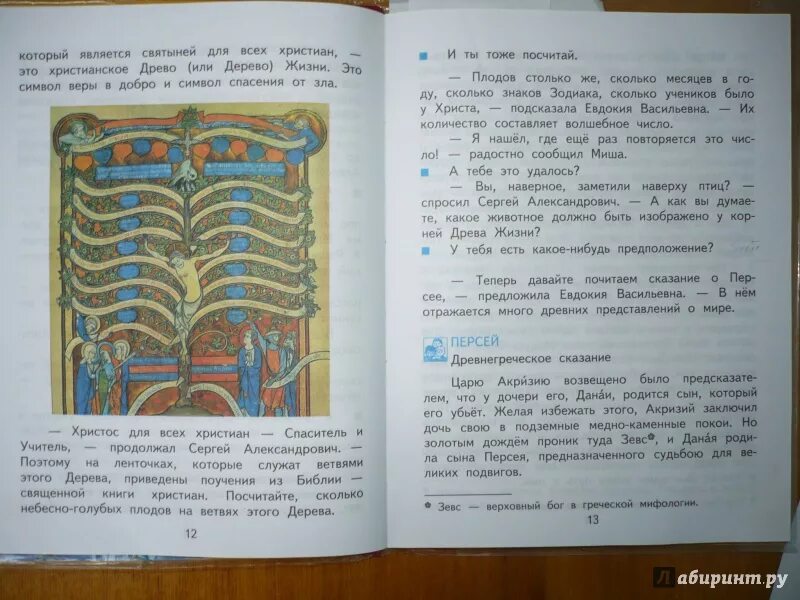 который является святыней для всех христиан, —
это христианское Древо (или Дерево) Жизни. Это
символ веры в добро и символ спасения от зла.
— Христос для всех христиан — Спаситель и
Учитель, — продолжал Сергей Александрович. —
Поэтому на ленточках, которые служат ветвями
этого Дерева, приведены поучения из Библии —
священной книги христиан. Посчитайте, сколько
небесно-голубых плодов на ветвях этого Дерева.
12
И ты тоже посчитай.
— Плодов столько же, сколько месяцев в го-
ду, сколько знаков Зодиака, сколько учеников было
у Христа, — подсказала Евдокия Васильевна. — Их
количество составляет волшебное число.
— Я нашёл, где ещё раз повторяется это чис-
ло! — радостно сообщил Миша.
А тебе это удалось?
— Вы, наверное, заметили наверху птиц? —
спросил Сергей Александрович. — А как вы думае-
те, какое животное должно быть изображено у кор-
ней Древа Жизни?
У тебя есть какое-нибудь предположение?
— Теперь давайте почитаем сказание о Пер-
сее, — предложила Евдокия Васильевна. — В нём
отражается много древних представлений о мире.
ПЕРСЕЙ
Древнегреческое сказание
Царю Акри́зию возвещено было предсказате-
лем, что у дочери его, Дана́и, родится сын, который
его убьёт. Желая избежать этого, Акризий заключил
дочь свою в подземные медно-каменные покои. Но
золотым дождём проник туда Зевс*, и Дана́я роди-
ла сына Персея, предназначенного судьбою для ве-
ликих подвигов.
* Зевс — верховный бог в греческой мифологии.
13
Лабиринт.ру